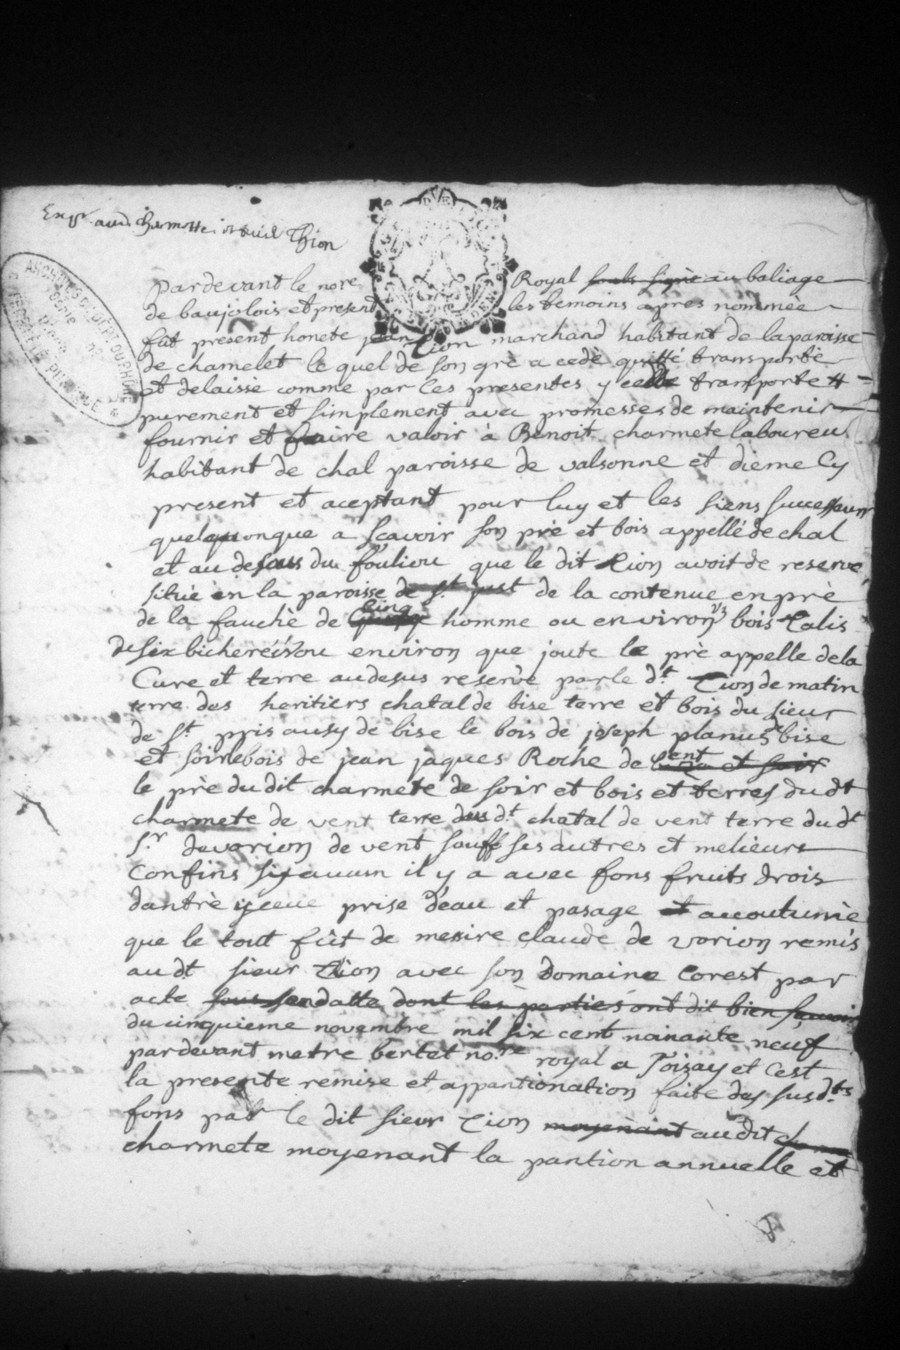 Thion
Pardevant le nore Royal souls signé au baliage
de baujolois et present les temoins apres nommée
fut present honete jean Tion marchand habitant de la paroisse
de chamelet le quel de son gré a cedé quitté transporté
et delaissé comme par ces presentes y cede transporte et
purement et simplement avec promesses de maintenir
fournir et faire valoir à Benoit charmete laboureur
habitant de chal paroisse de valsonne et dieme cy
present et aceptant pour luy et les siens successeurs
quelquonque a scavoir son pré et bois appellé de chal
et au desous du fouliou que le dit Tion avoit de reservé
situé en la paroisse de st just de la contenue en pré
de la fauché de cinq homme ou environ bois Talis
de six bicherées ou environ que joute le pré appelle de la
Cure et terre au desus reservé par le dt Tion de matin
terre des heritiers chatal de bise terre et bois du sieur
de st pris ausy de bise le bois de joseph planus de bise
et soir le bois de jean jaques Roche de vent et soir
le pré du dit charmete de soir et bois et terres du dt
charmete de vent terre du dt chatal de vent terre du dt
sr devarion de vent sauff ses autres et melieurs
Confins sy aucun il y a avec fons fruits drois
dantré yceux prise d'eau et pasage et acoutumée
que le tout fût de mesire claude de varion remis
au dt sieur Tion avec son Domaine Corest par
acte sous sen datte dont les parties ont dit bien scavoir
du cinquieme novembre mil six cent nonante neuf
pardevant metre bertet nore royal a Toizay et cest
la presente remise et appantionation faite des susdts
fons par le dit sieur Tion moyenant audit
charmete moyenant la pantion annuelle et